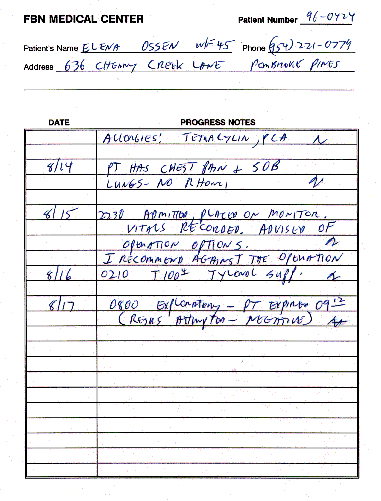 FBN MEDICAL CENTER
Patient Number 96-0424
Patient's Name ELENA OSSEN wf 45 Phone (954) 221-0779
Address 636 CHERRY CREEK LANE PEMBROKE PINES
DATE PROGRESS NOTES
ALLERGIES: PCA
8/14 PT HAS CHEST PAIN + SOB
LUNGS - NO RHONCI
8/15 2230 ADMITTED, PLACED ON MONITOR.
VITALS RECORDED. ADVISED OF
OPERATION OPTIONS.
I RECOMMEND AGAINST THE OPERATION
8/16 0210 T 100⁴ TYLENOL SUPP.
8/17 0800 EXPLORATORY - PT EXPIRED 09¹²
(RESUS ATTEMPTED - NEGATIVE)